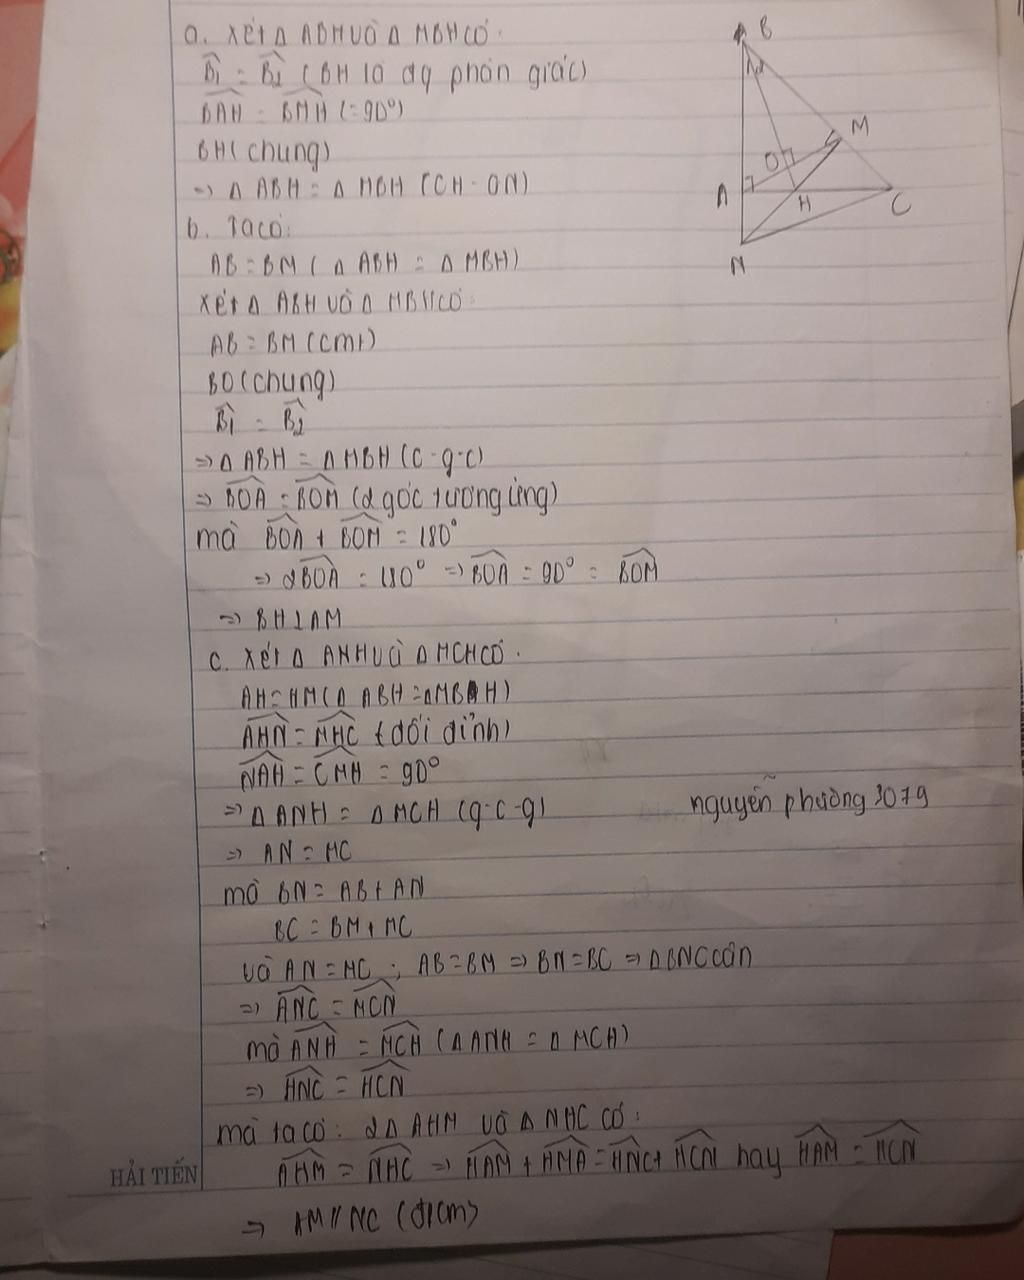 a. xét Δ ABH và Δ MBH có:
B̂1 = B̂2 (BH là đg phân giác)
BAH = BMH (=90°)
BH (chung)
=> Δ ABH = Δ MBH (CH - GN)
b. Ta có:
AB = BM (Δ ABH = Δ MBH)
xét Δ ABH và Δ MBH có:
AB = BM (cmt)
BO (chung)
B̂1 = B̂2
=> Δ ABH = Δ MBH (c-g-c)
=> BOA = BOM (2 góc tương ứng)
mà BOA + BOM = 180°
=> 2BOA = 180° => BOA = 90° = BOM
=> BH ⊥ AM
c. xét Δ ANH và Δ MCH có:
AH = HM (Δ ABH = ΔMBH)
AHN = MHC (đối đỉnh)
NAH = CMH = 90°
=> Δ ANH = Δ MCH (g-c-g)
nguyễn phương 3079
=> AN = MC
mà BN = AB + AN
BC = BM + MC
và AN = MC ; AB = BM => BN = BC => ΔBNC cân
=> ANC = MCN
mà ANH = MCH (Δ ANH = Δ MCH)
=> HNC = HCN
mà ta có: 2Δ AHM và Δ NHC có:
AHM = NHC => HAM + HMA = HNC + HCN hay HAM = HCN
=> AM // NC (đpcm)
HẢI TIẾN
B
M
O
A
H
C
N